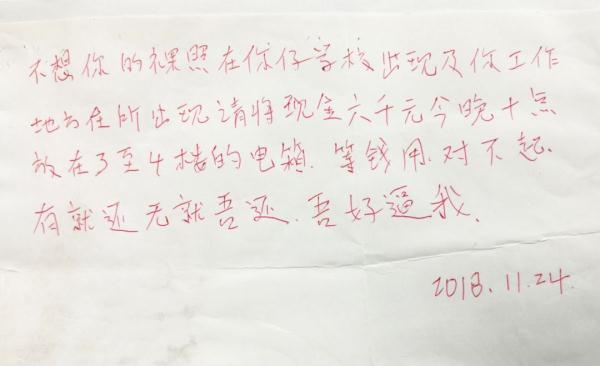 不想你的裸照在你仔学校出现及你工作
地方住所出现请将现金六千元今晚十点
放在3至4楼的电箱.等钱用.对不起.
有就还无就吾还.吾好逼我.
2018.11.24.